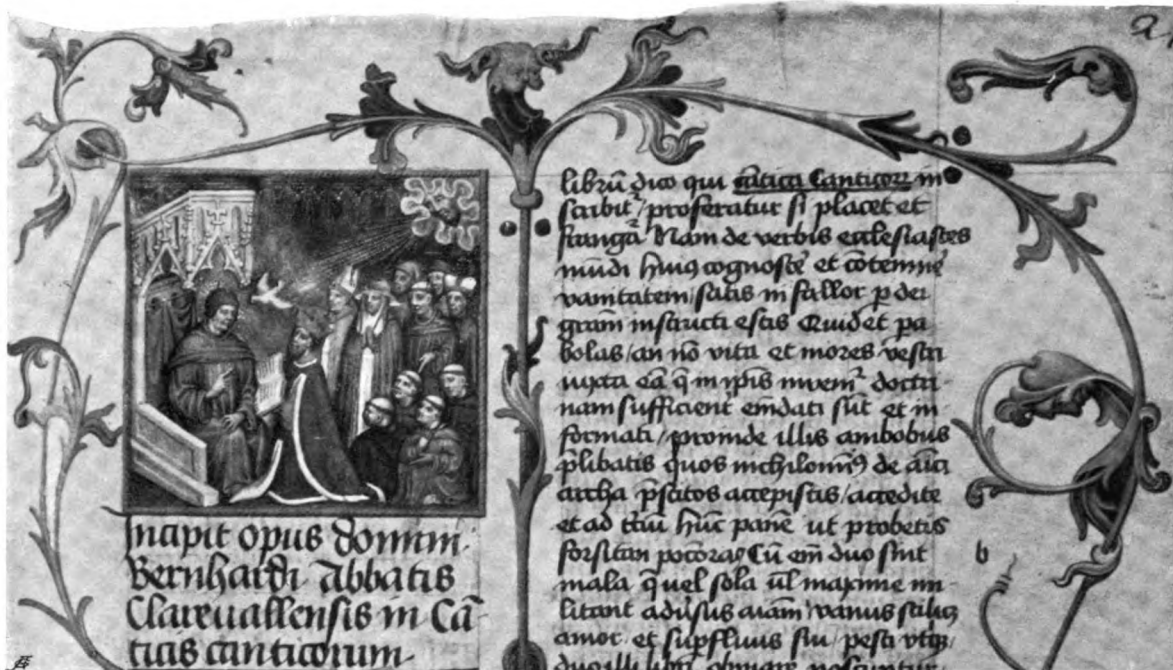 Incipit opus domini
Bernhardi Abbatis
Clareuallensis in Cā
ticis canticorum
librū dico qui cātica Canticoꝝ in
scribit᷑ / proferatur si placet et
frangat᷑ Nam de verbis ecclesiastes
mūdi huiꝰ cognoscē et cōtemnē
vanitatem / satis ni fallor p dei
gram instructi estis Quid et pa
bolas / an nō vita et mores vestri
iuxta eā q̄ in ip̄is inuenit᷑ doctri
nam sufficient᷑ emēdati sūt et in
formati / proinde illis ambobus
p̄libatis quos nichilominꝰ de amici
archa p̄stitos accepistis / accedite
et ad t̄ciū hūc panē ut probetis
forsitan pociora Cū em̄ duo sint
mala q̄ uel sola ul̄ maxime mi
litant aduersus aīam / vanus scilicꝫ
amor et supfluus sui / pesti vtiqꝫ
duo illi libri obuiare noscuntur
b